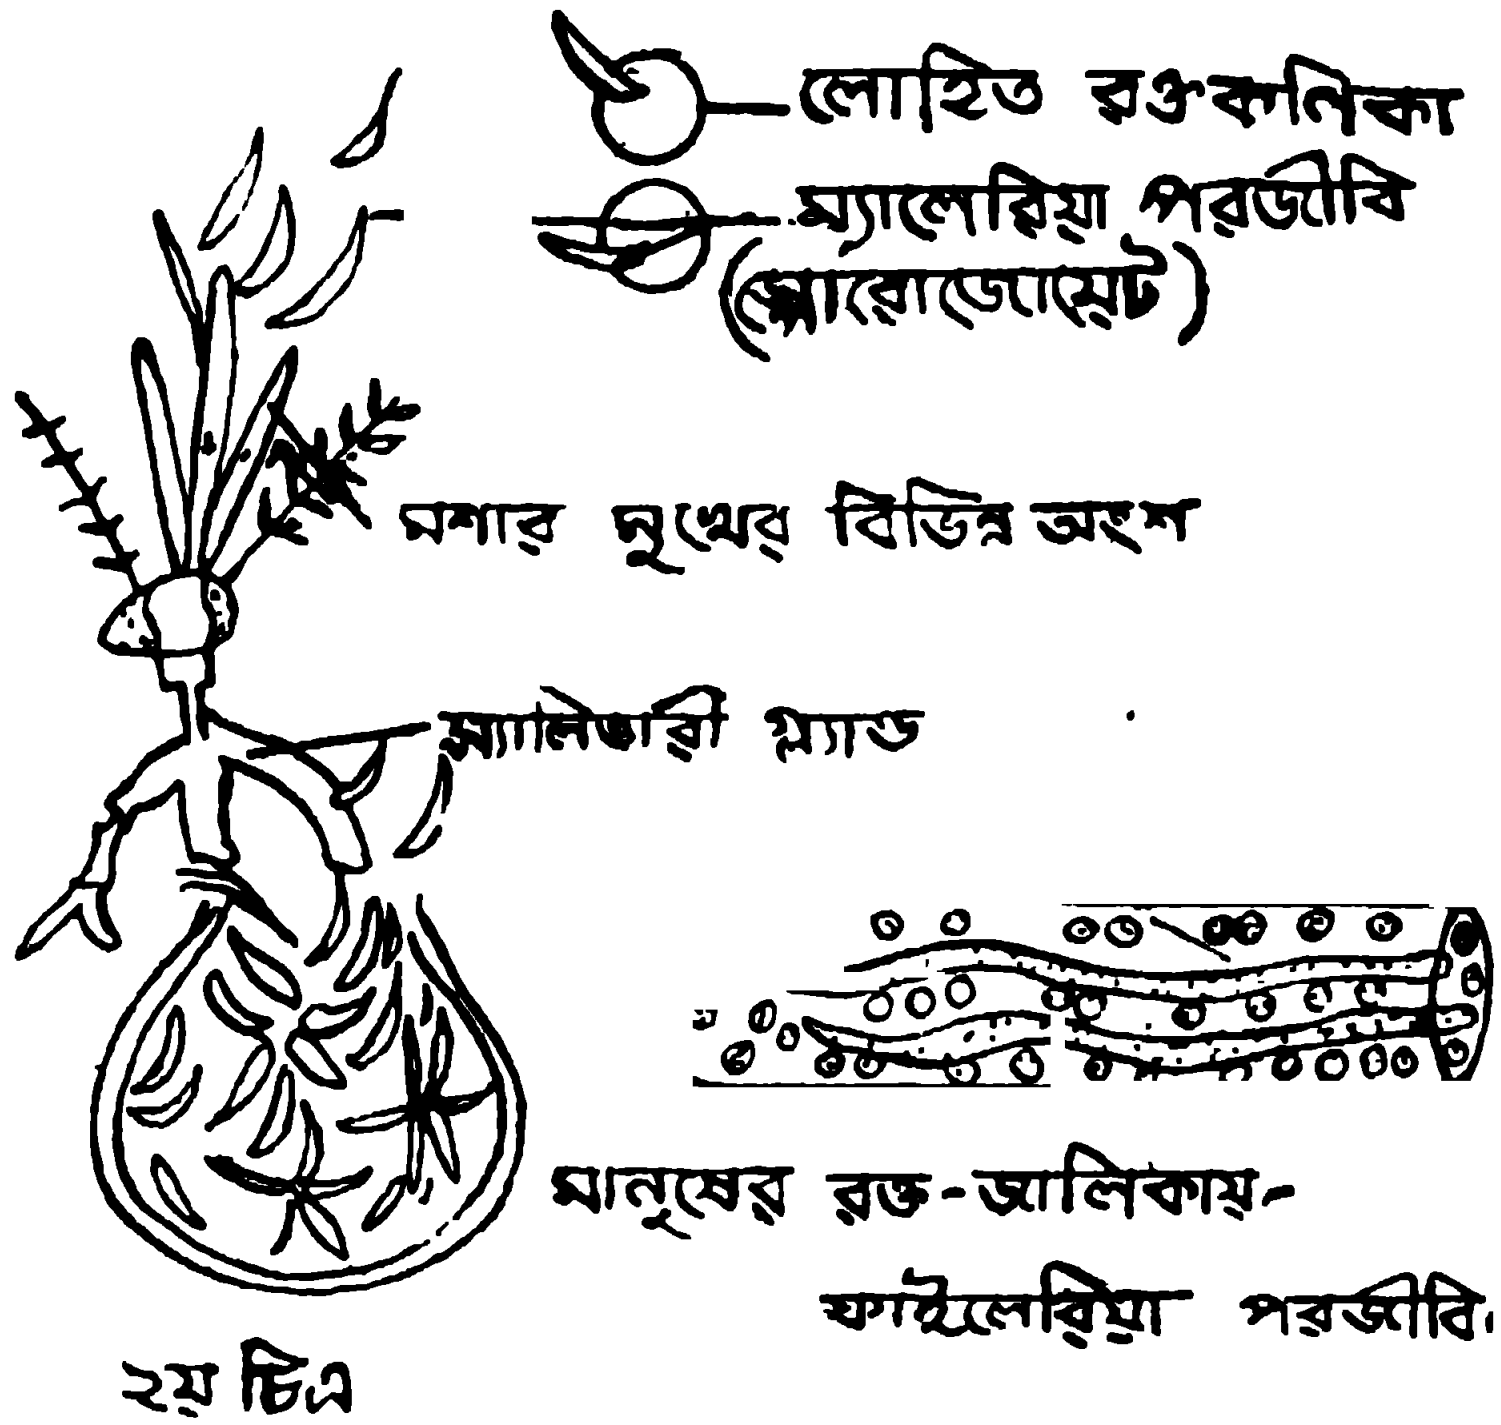 লোহিত রক্তকনিকা
ম্যালেরিয়া পরজীবি
(স্পোরোজোয়েট)
মশার মুখের বিভিন্ন অংশ
স্যালিভারী গ্ল্যান্ড
মানুষের রক্ত-জালিকায়-
ফাইলেরিয়া পরজীবি।
২য় চিত্র